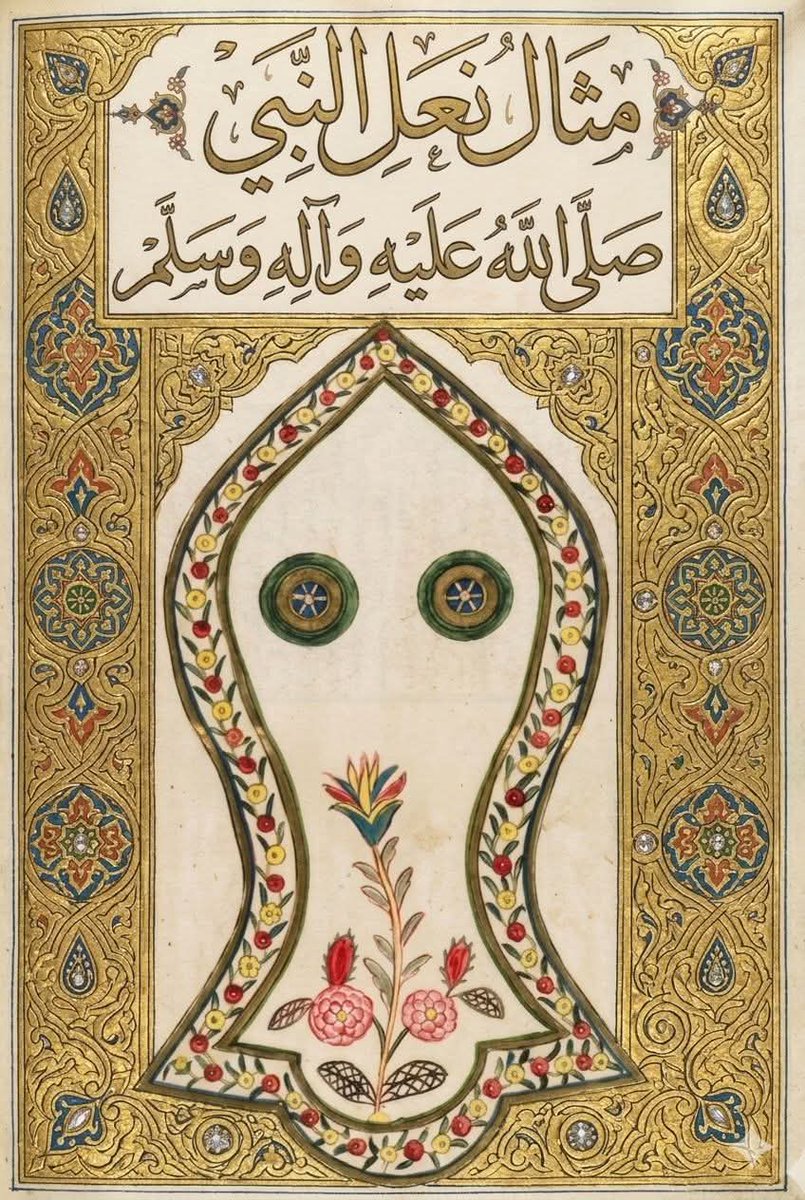 مِثَال نَعَلِ النَّبِي
صَلَّى اللَّهُ عَلَيْهِ وَآلِهِ وَسَلَّمْ